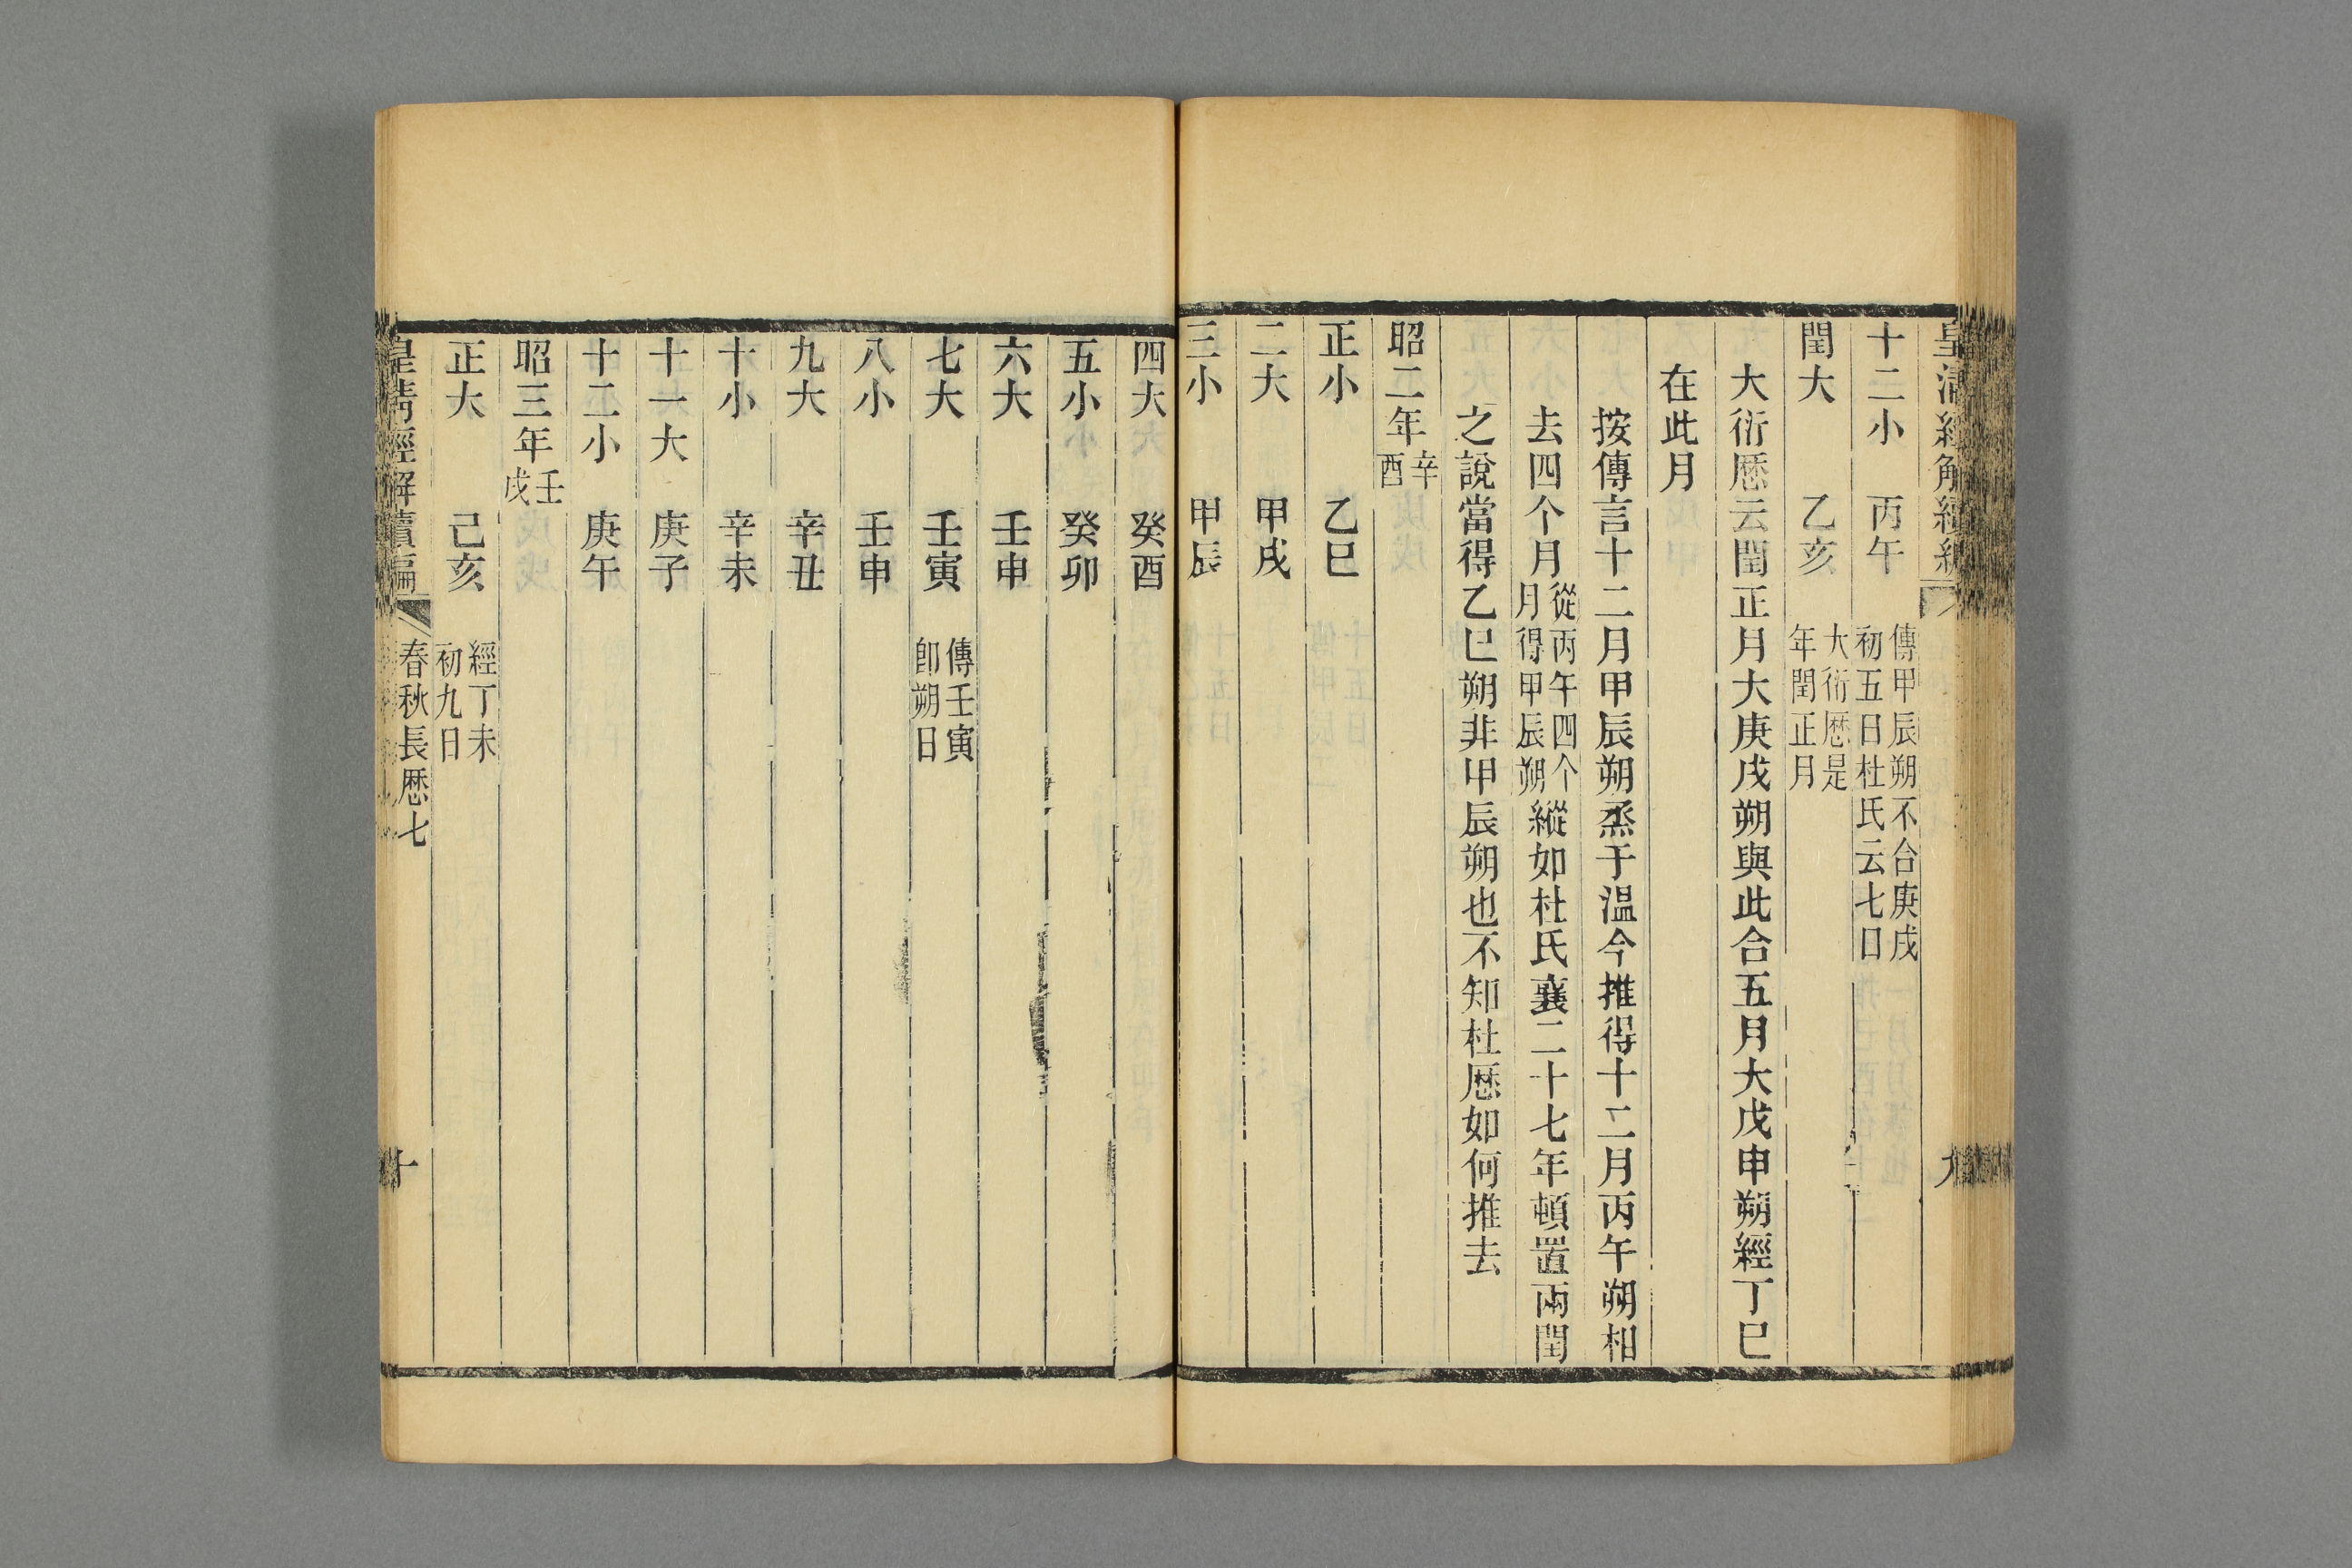 十二小　丙午　傳甲辰朔不合庚戌
初五日杜氏云七日
閏大　乙亥　大衍厯是
年閏正月
大衍厯云閏正月大庚戌朔與此合五月大戊申朔經丁巳
在此月
按傳言十二月甲辰朔烝于溫今推得十二月丙午朔相
去四个月從丙午四个
月得甲辰朔縱如杜氏襄二十七年頓置兩閏
之說當得乙巳朔非甲辰朔也不知杜厯如何推去
昭二年辛
酉
正小　乙巳
二大　甲戌
三小　甲辰
四大　癸酉
五小　癸卯
六大　壬申
七大　壬寅　傳壬寅
卽朔日
八小　壬申
九大　辛丑
十小　辛未
十一大　庚子
十二小　庚午
昭三年壬
戌
正大　己亥　經丁未
初九日
皇清經解續編　春秋長厯七　十